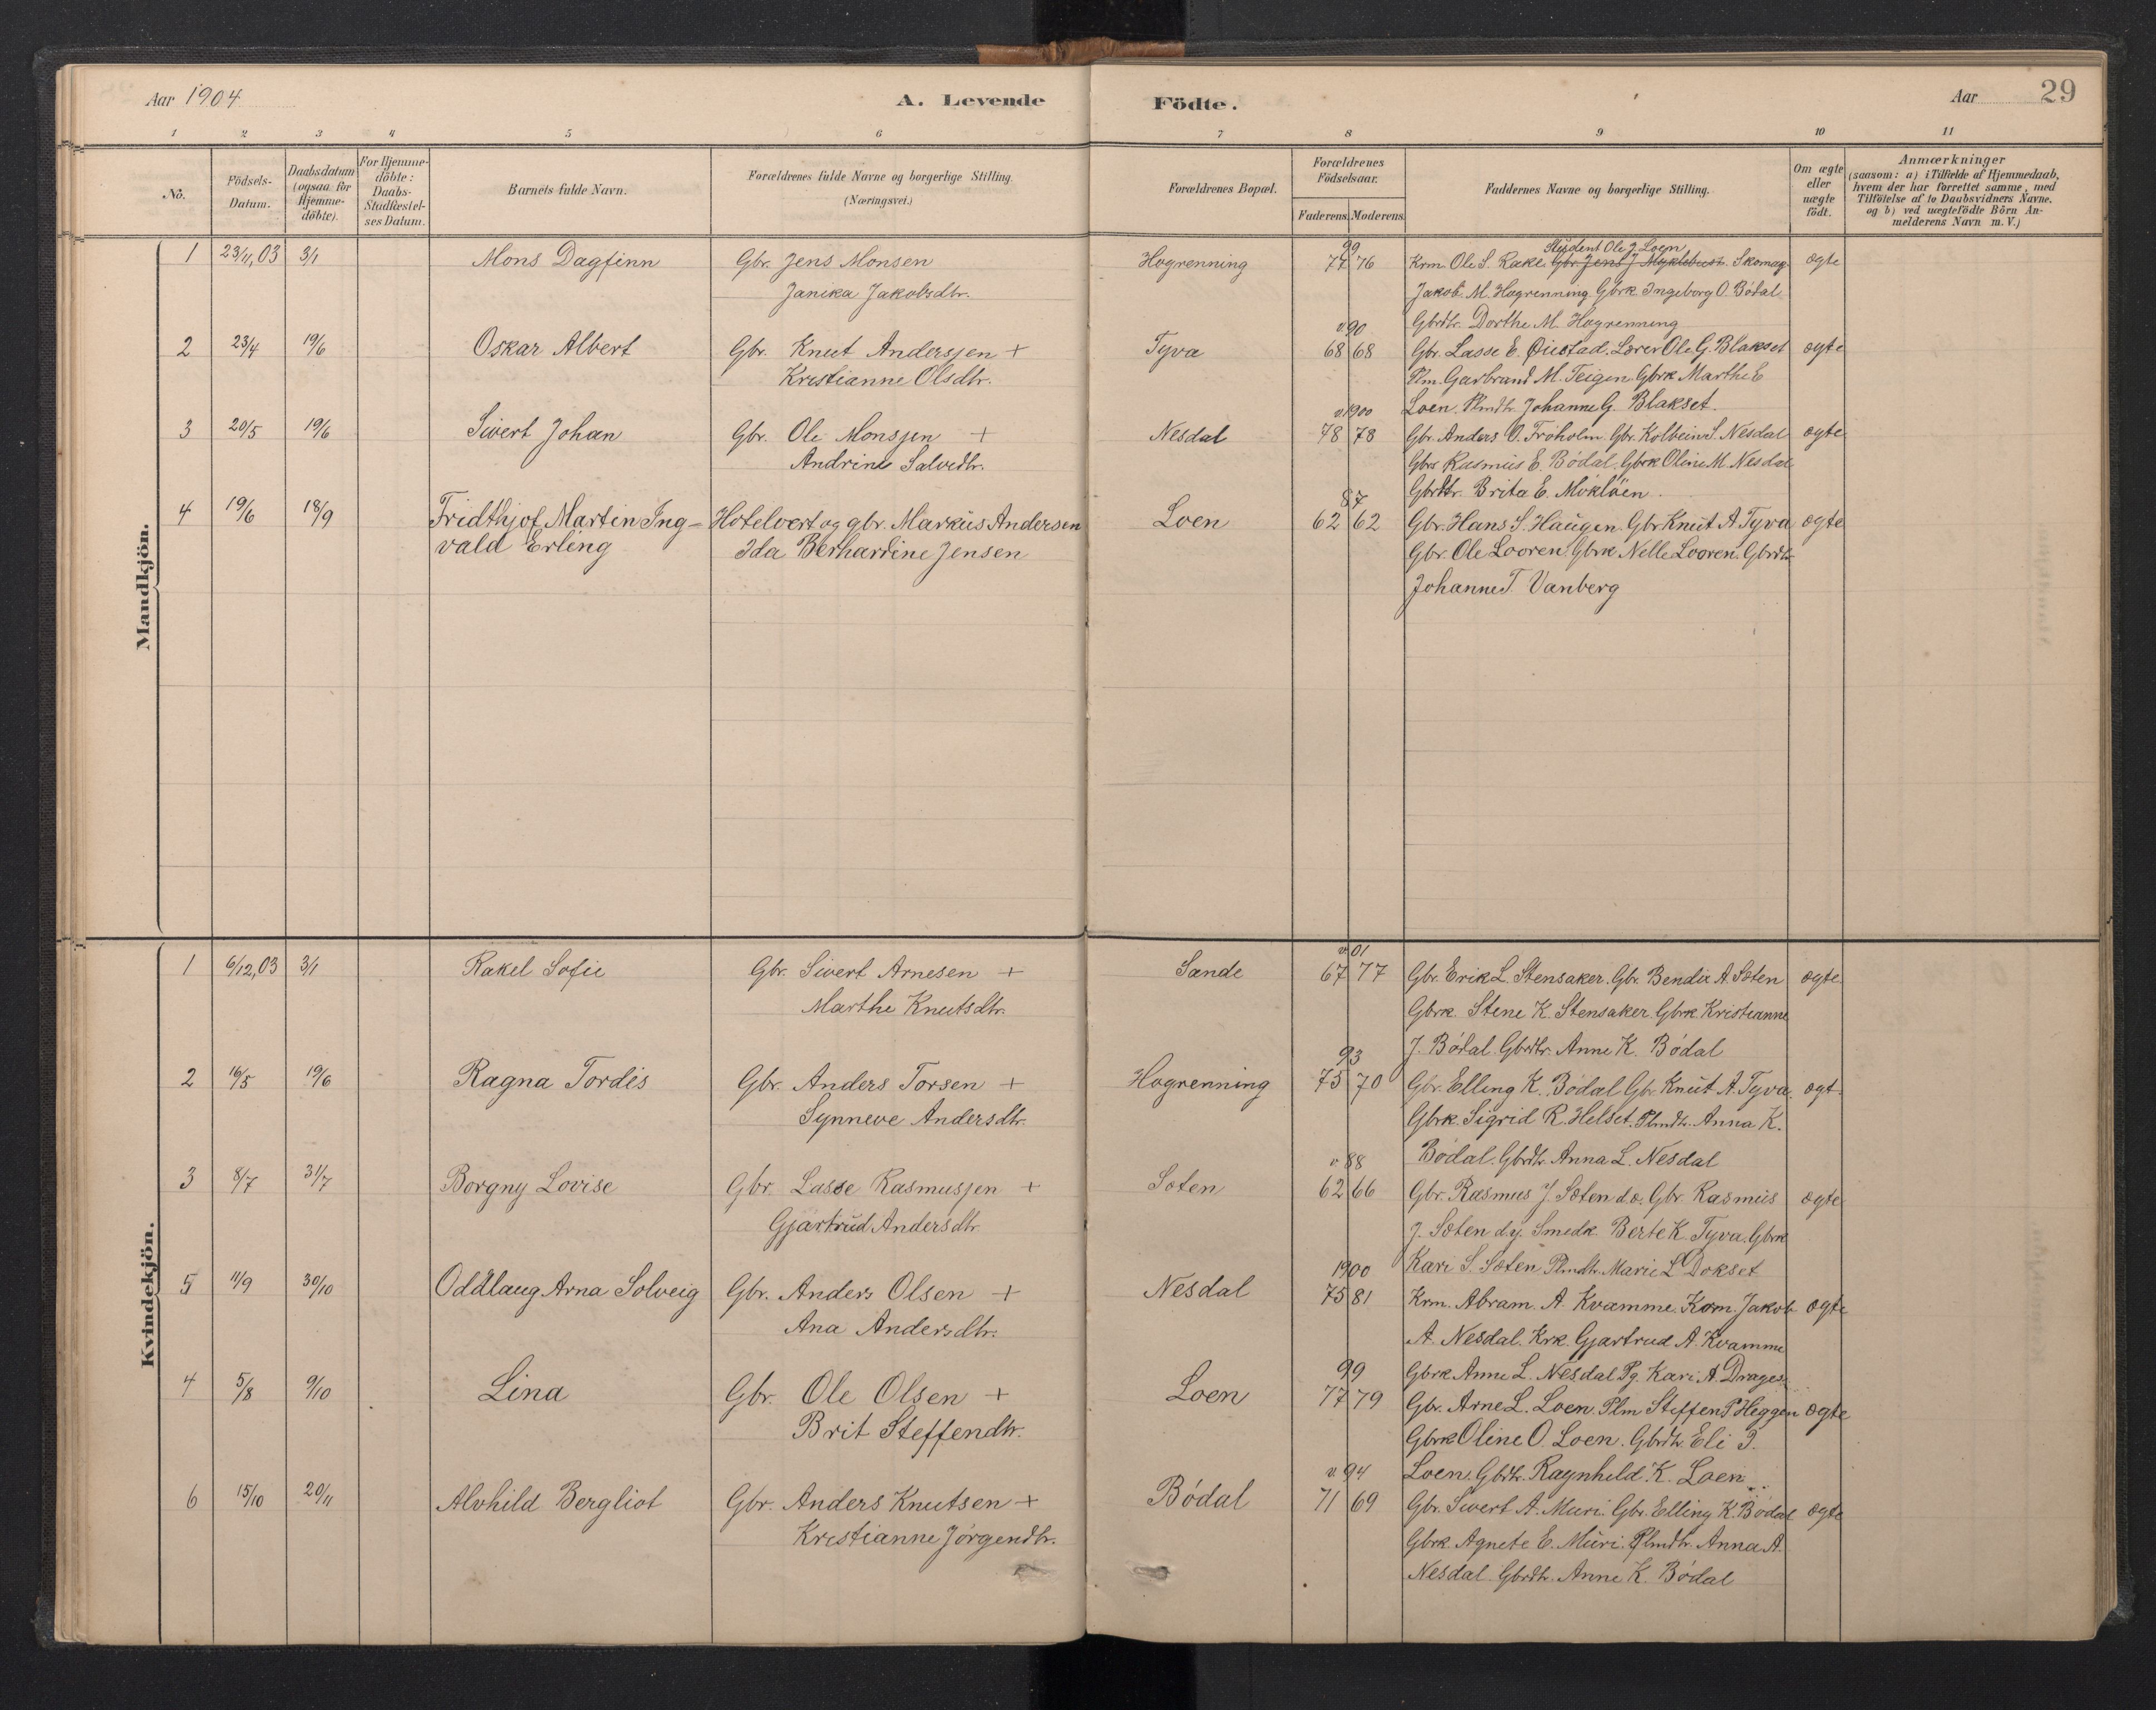 Aar 1904
A. Levende Födte.
Aar 29
1 2 3 4 5 6 7 8 9 10 11
No.
Födsels-Datum.
Daabsdatum (ogsaa for Hjemme-döbte).
For Hjemme-döbte: Daabs-Stadfæstel-ses Datum.
Barnets fulde Navn.
Forældrenes fulde Navne og borgerlige Stilling. (Næringsvei.)
Forældrenes Bopæl.
Forældrenes Födselsaar.
Faderens. Moderens.
Faddernes Navne og borgerlige Stilling.
Om ægte eller uægte födt.
Anmærkninger
(saasom: a) i Tilfælde af Hjemmedaab,
hvem der har forrettet samme, med
Tilföielse af to Daabsvidners Navne.
og b) ved uægtefödte Börn An-
melderens Navn m. V.)
Mandkjön.
99 Student Ole J. Loen
1 23/11,03 3/1 Mons Dagfinn Gbr. Jens Monsen Hogrenning 77 76 Krm Ole S. Rake. Gbr. Jens J Myklebust. Skomag. ægte
Janika Jakobsdtr. Jakob M. Hogrenning Gbrk. Ingeborg O. Bödal
v 90 Gbrdtr. Dorthe M. Hogrenning
2 23/4 19/6 Oskar Albert Gbr. Knut Andersen + Tyva 68 68 Gbr. Lasse E. Öiestad. Lærer Ole G. Blakset ægte
Kristianne Olsdtr. Plm. Garbrand M. Teigen. Gbrk Marthe E
v 1900 Loen. Plmdtr. Johanne G. Blakset.
3 20/5 19/6 Sivert Johan Gbr. Ole Monsen + Nesdal 78 78 Gbr. Anders O. Fröholm. Gbr. Kolbein S. Nesdal ægte
Andrine Salvedtr. Gbrs Rasmus E. Bödal. Gbrk Oline M. Nesdal
87 Gbrdtr. Brita E. Moklöen.
4 19/6 18/9 Fridthjof Martin Ing- Hotelvert og gbr. Markus Andersen Loen 62 62 Gbr. Hans S. Haugen. Gbr Knut A Tyva ægte
vald Erling Ida Berhardine Jensen Gbr. Ole Looren. Gbrk Nelle Looren. Gbrdtr
Johanne T. Vanberg
Kvindekjön.
v. 01
1 6/12,03 3/1 Rakel Sofie Gbr. Sivert Arnesen + Sande 67 77 Gbr. Erik L. Stensaker. Gbr. Bendix A. Sæten ægte.
Marthe Knutsdtr. Gbrk. Stene K. Stensaker. Gbrk. Kristianne
93 J. Bödal. Gbrdtr. Anne K. Bödal
2 16/5 19/6 Ragna Tordis Gbr. Anders Torsen + Hogrenning 75 70 Gbr. Elling K. Bödal Gbr Knut A. Tyva. ægt.
Synneve Andersdtr. Gbrk. Sigrid R. Helset. Plmdtr. Anna K.
v. 88 Bödal. Gbrdtr. Anna L. Nesdal
3 8/7 31/7 Borgny Lovise Gbr. Lasse Rasmusen + Sæten 62 66 Gbr. Rasmus J. Sæten d.æ. Gbr. Rasmus ægte
Gjartrud Andersdtr J. Sæten d.y. Smedk. Berte K. Tyva. Gbrk
1900 Kari S. Sæten Plmdtr. Marie L Dokset
5 11/9 30/10 Oddlaug Arna Solveig Gbr. Anders Olsen + Nesdal 75 81 Krm. Abram. A. Kvamme. Krm. Jakob ægte
Ana Andersdtr. A. Nesdal. Krk. Gjartrud A. Kvamme
99 Gbrk Anne L. Nesdal Pg. Kari A Drages.
4 5/8 9/10 Lina Gbr. Ole Olsen + Loen 77 79 Gbr. Arne L. Loen. Plm Steffen P Heggen ægte
Brit Steffendtr. Gbrk Oline O. Loen. Gbrdtr. Eli J.
v. 94 Loen. Gbdtr. Ragnhild K. Loen.
6 15/10 20/11 Alvhild Bergliot Gbr. Anders Knutsen + Bödal 71 69 Gbr. Sivert A. Muri. Gbr. Elling K. Bödal ægte
Kristianne Jörgendtr. Gbrk. Agnete E. Muri. Plmdtr. Anna A.
Nesdal. Gbrdtr. Anne K. Bödal